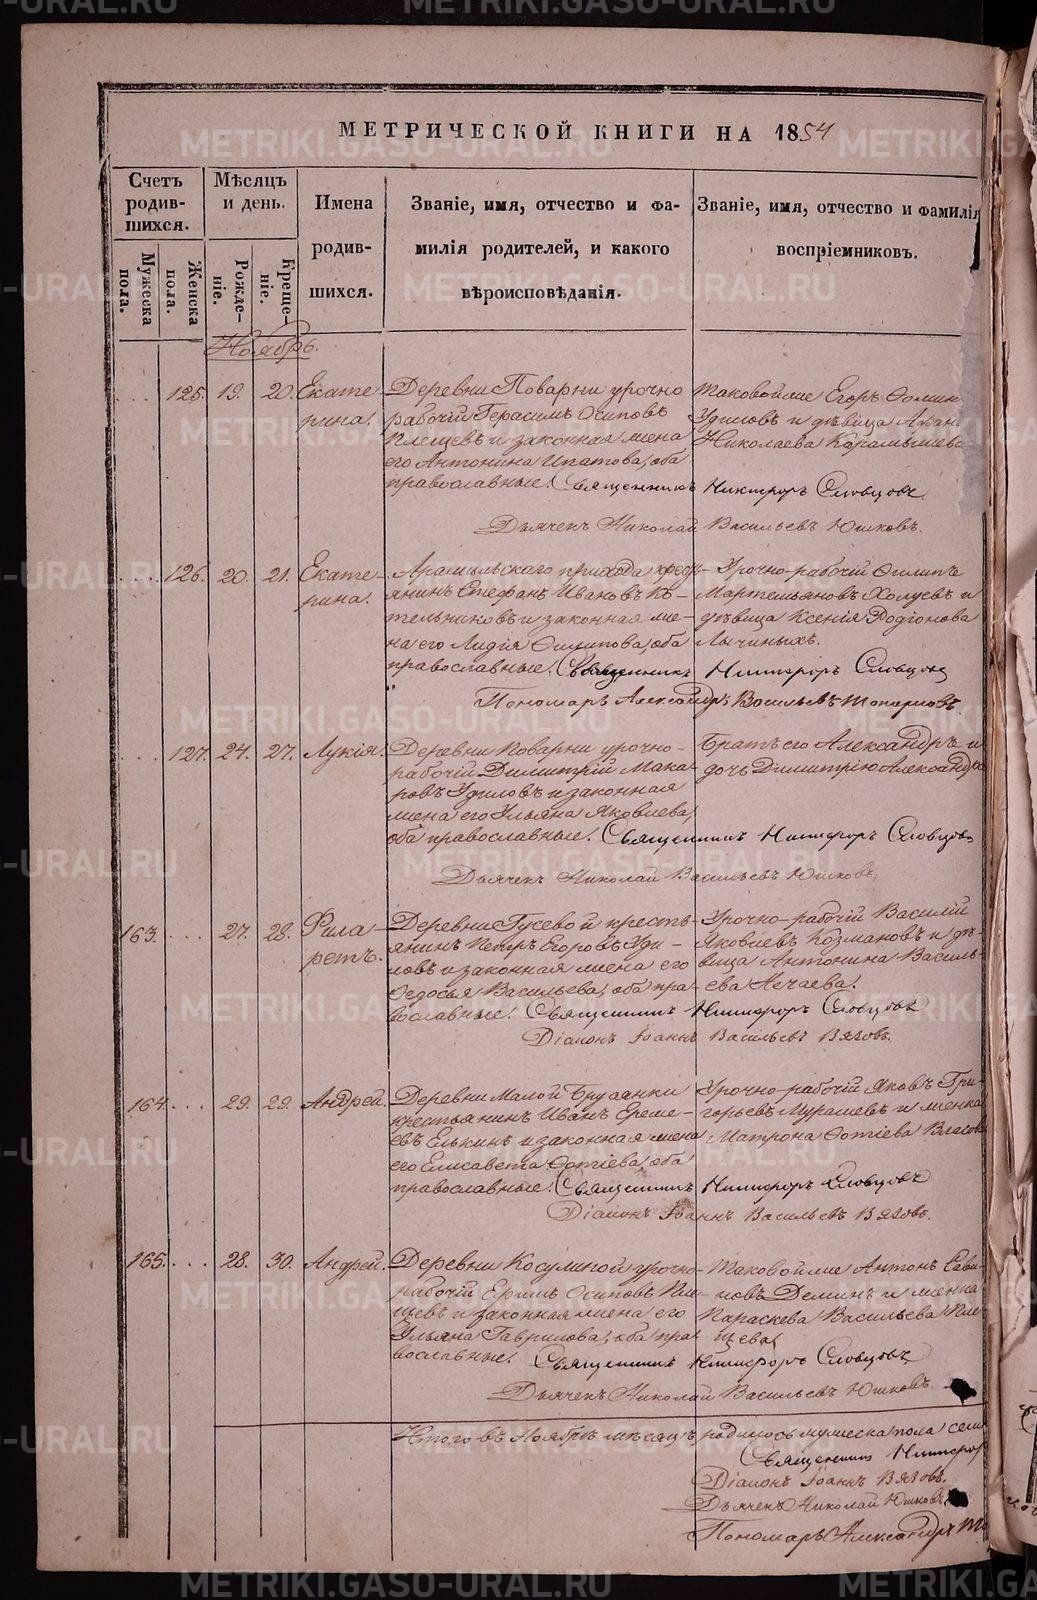 МЕТРИЧЕСКОЙ КНИГИ НА 1854
Счетъ родив- шихся.
Мѣсяцъ и день.
Имена родив- шихся.
Званіе, имя, отчество и фа- милія родителей, и какого вѣроисповѣданія.
Званіе, имя, отчество и фамилія воспріемниковъ.
Мужеска пола.
Женска пола.
Рожде- ніе.
Креще- ніе.
Ноябрь.
125. 19. 20. Екате- рина.
Деревни Поварни урочно
рабочій Герасимъ Осиповъ
Плещевъ и законная жена
его Антонина Ипатова, оба
православные.
Таковой же Егоръ Ѳомин
Удиловъ и дѣвица
Николаева Карамышева
Священникъ Никифоръ Словцовъ
Дьячекъ Николай Васильевъ Юшковъ.
126. 20. 21. Екате- рина.
Арамильскаго прихода кресть-
янинъ Стефанъ Ивановъ Ко-
тельниковъ и законная же-
на его Лидія Филипова, оба
православные.
Урочно-рабочій Филипъ
Мартемьяновъ Холуевъ и
дѣвица Ксенія Родіонова
Лычиныхъ.
Священникъ Никифоръ Словцовъ
Пономарь Александръ Васильевъ Топорковъ.
127. 24. 27. Лукія.
Деревни Поварни урочно-
рабочій Димитрій Мака-
ровъ Удиловъ и законная
жена его Ульяна Яковлева,
оба православные.
Братъ его Александръ и
дочь Димитрію Александра
Священникъ Никифоръ Словцовъ
Дьячекъ Николай Васильевъ Юшковъ.
163. 27. 28. Фила- ретъ.
Деревни Гусевой кресть-
янинъ Петръ Егоровъ Уди-
ловъ и законная жена его
Ѳедосья Васильева, оба пра-
вославные.
Урочно-рабочій Василій
Яковлевъ Козмаковъ и дѣ-
вица Антонина Василь-
ева Нечаева.
Священникъ Никифоръ Словцовъ
Діаконъ Іоаннъ Васильевъ Вяловъ.
164. 29. 29. Андрей
Деревни Малой Брусянки
крестьянинъ Иванъ Ереме-
евъ Елькинъ и законная жена
его Елисавета Фотіева, оба
православные.
Урочно-рабочій Яковъ Гри-
горьевъ Мурашевъ и женка
Матрона Фотіева Власова
Священникъ Никифоръ Словцовъ
Діаконъ Іоаннъ Васильевъ Вяловъ.
165. 28. 30. Андрей.
Деревни Косулиной урочно-
рабочій Ермилъ Осиповъ Пле-
щевъ и законная жена его
Ульяна Гаврилова, оба пра-
вославные.
Таковой же Антонъ Сави-
новъ Деминъ и женка
Параскева Васильева Пле-
щева.
Священникъ Никифоръ Словцовъ
Дьячекъ Николай Васильевъ Юшковъ.
Итого въ Ноябрѣ мѣсяцѣ родилось мужеска пола семь
Священникъ Никифоръ
Діаконъ Іоаннъ Вяловъ.
Дьячекъ Николай Юшковъ
Пономарь Александръ То
METRIKI.GASO-URAL.RU